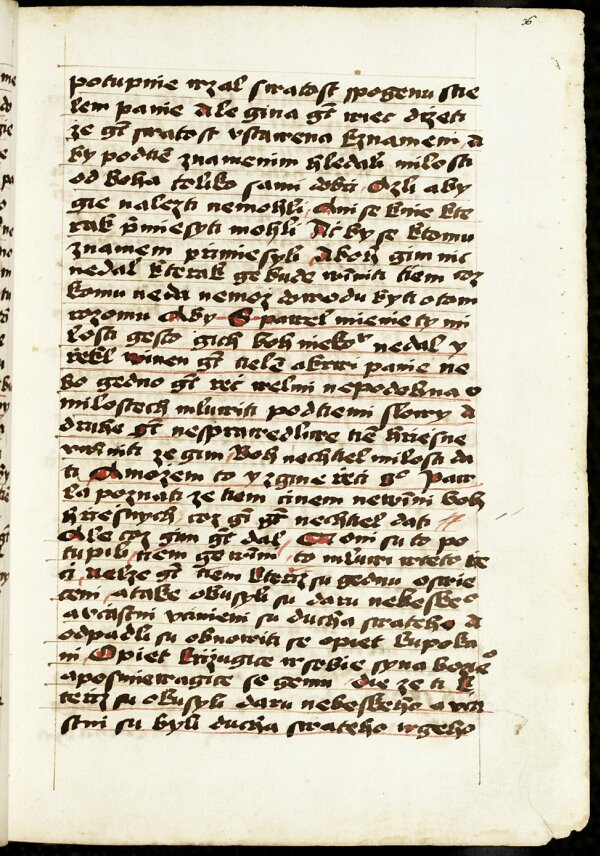 36
potupnie wzal swatost spogenu stie
lem panie Ale gina gt wiec drzeti
ze gt swatost vstawena kznameni A
by podtiem znamenim hledali milosti
od boha toliko sami dobri Ozli aby
gie nalezti nemohli Ani se knie kte
rak pmiesyti mohli At by se ktomu
znamem primiesyli Aboz gim nic
nedal kterak ge bude winiti tiem coz
komu neda nemoz dowodu byti otom
rozomu Aby S pawel mienie ty mi
losti gesto gich boh niekor nedal y
rekl winen gt tiele akrwi panie ne
bo gedno gt rec welmi nepodobna o
milostech mluwiti podtiemi slowy A
druhe gt nesprawedliwe tiem hriesne
winiti ze gim Boh nechtiel milosti da
ti A mozem to y zgine reci
la poznati ze tiem cinem newini boh
hriesnych coz gi nechtiel dati
Ale coz gim gt dal oni su to po
tupili tiem ge wini to mluwi wteto re
ci Nelze gt tiem kteriz su gednu oswie
ceni a take okusyli su daru nebeskeo
a vcastni vcinieni su ducha swateho A
odpadli su obnowiti se opiet kupoka
ni Opiet krizugice wsobie syna bozieo
aposmiewagice se gemu die ze ti k
teriz su okusyli daru nebeskeho a vca
stni su byli ducha swateho wgeho